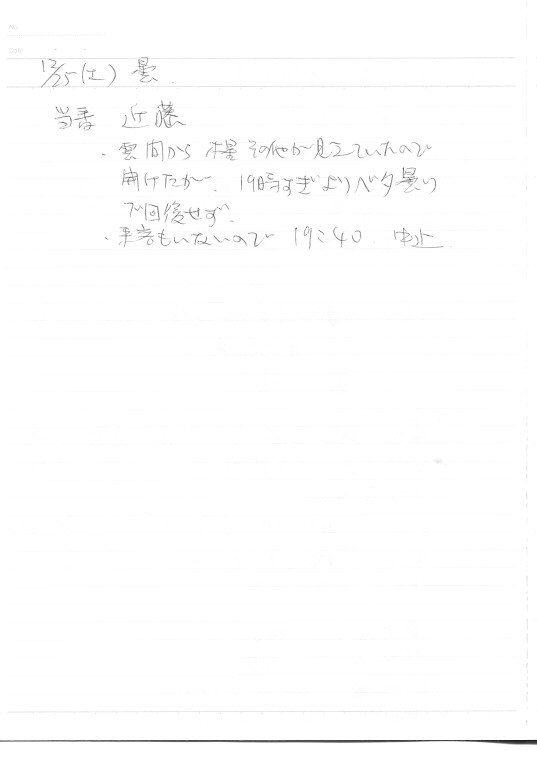 12/25(土) 曇.
当番 近藤
・雲間から 木星 その他が見えていたので
開けたが、19時すぎよりベタ曇り
で回復せず.
・来客もいないので 19:40 中止.